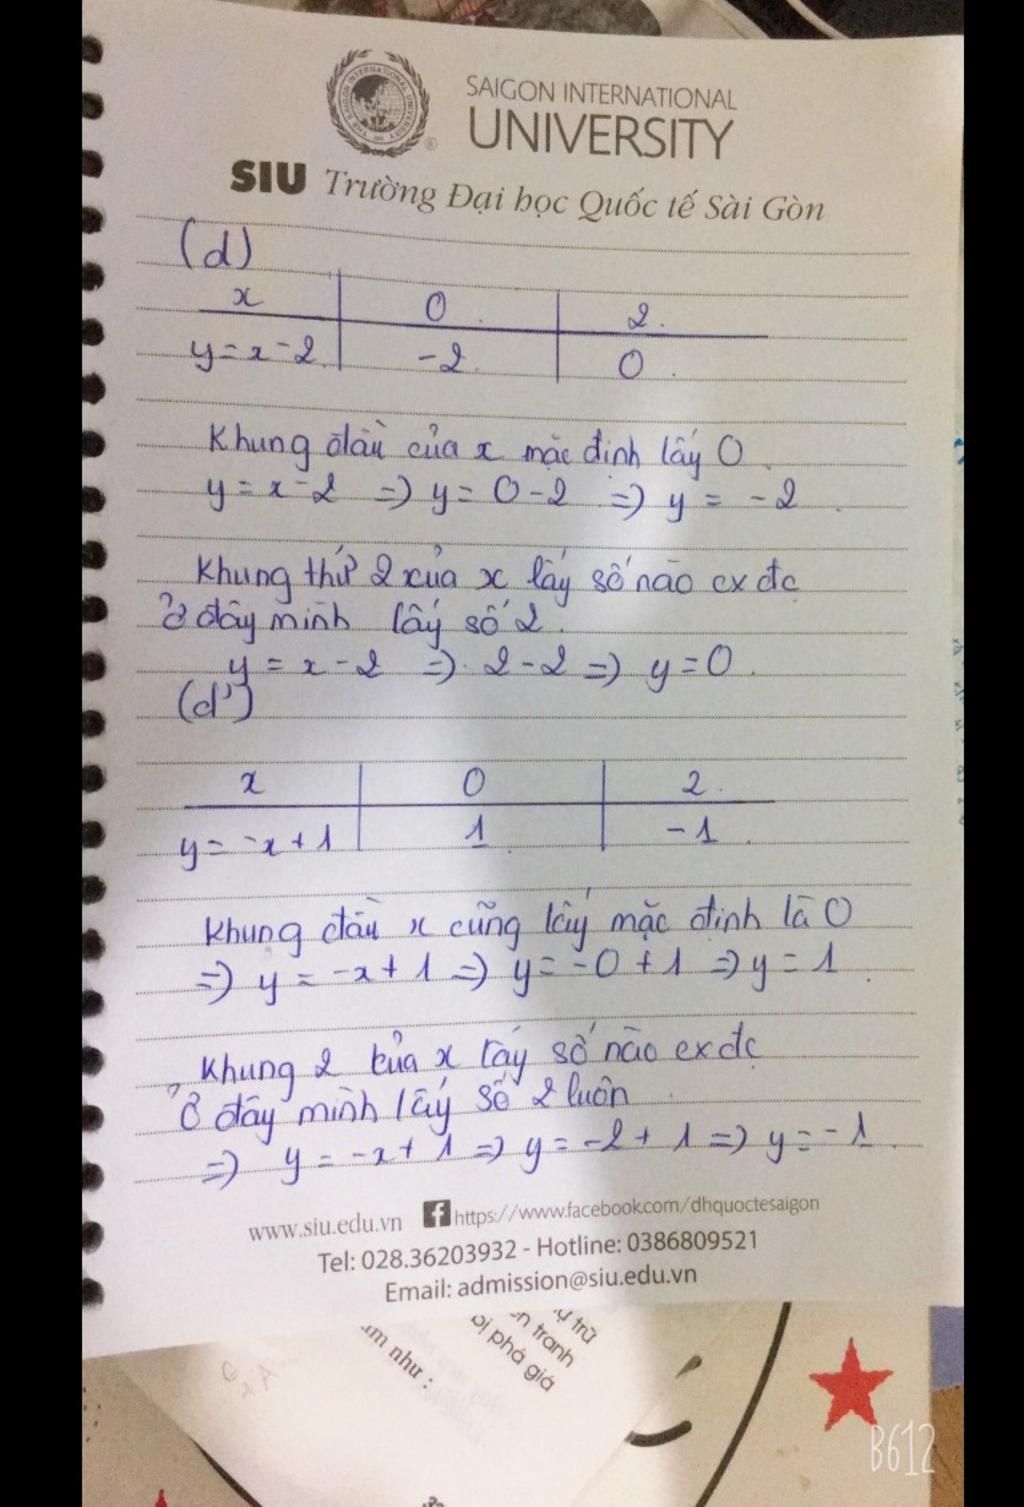 SAIGON INTERNATIONAL
UNIVERSITY
®
SIU Trường Đại học Quốc tế Sài Gòn
(d)
x 0 2.
y = x - 2 -2 0
Khung đầu của x mặc định lấy 0
y = x - 2 => y = 0 - 2 => y = -2
Khung thứ 2 của x lấy số nào cx đc
Ở đây mình lấy số 2.
y = x - 2 => 2 - 2 => y = 0.
(d')
x 0 2.
y = -x + 1 1 -1
Khung đầu x cũng lấy mặc định là 0
=> y = -x + 1 => y = -0 + 1 => y = 1
Khung 2 của x lấy số nào cx đc
Ở đây mình lấy số 2 luôn
=> y = -x + 1 => y = -2 + 1 => y = -1
www.siu.edu.vn f https://www.facebook.com/dhquoctesaigon
Tel: 028.36203932 - Hotline: 0386809521
Email: admission@siu.edu.vn
trữ
tranh
bị phá giá
như :
B612